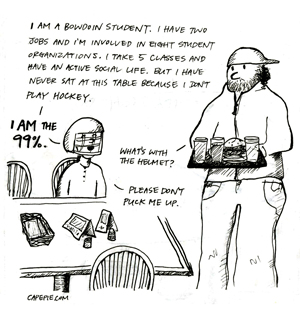 I AM A BOWDOIN STUDENT. I HAVE TWO
JOBS AND I'M INVOLVED IN EIGHT STUDENT
ORGANIZATIONS. I TAKE 5 CLASSES AND
HAVE AN ACTIVE SOCIAL LIFE. BUT I HAVE
NEVER SAT AT THIS TABLE BECAUSE I DON'T
PLAY HOCKEY.
I AM THE
99%.
WHAT'S WITH
THE HELMET?
PLEASE DON'T
PUCK ME UP.
CAPEPIE.COM